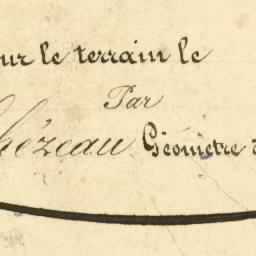 ur le terrain le
Par
hézeau Géometre